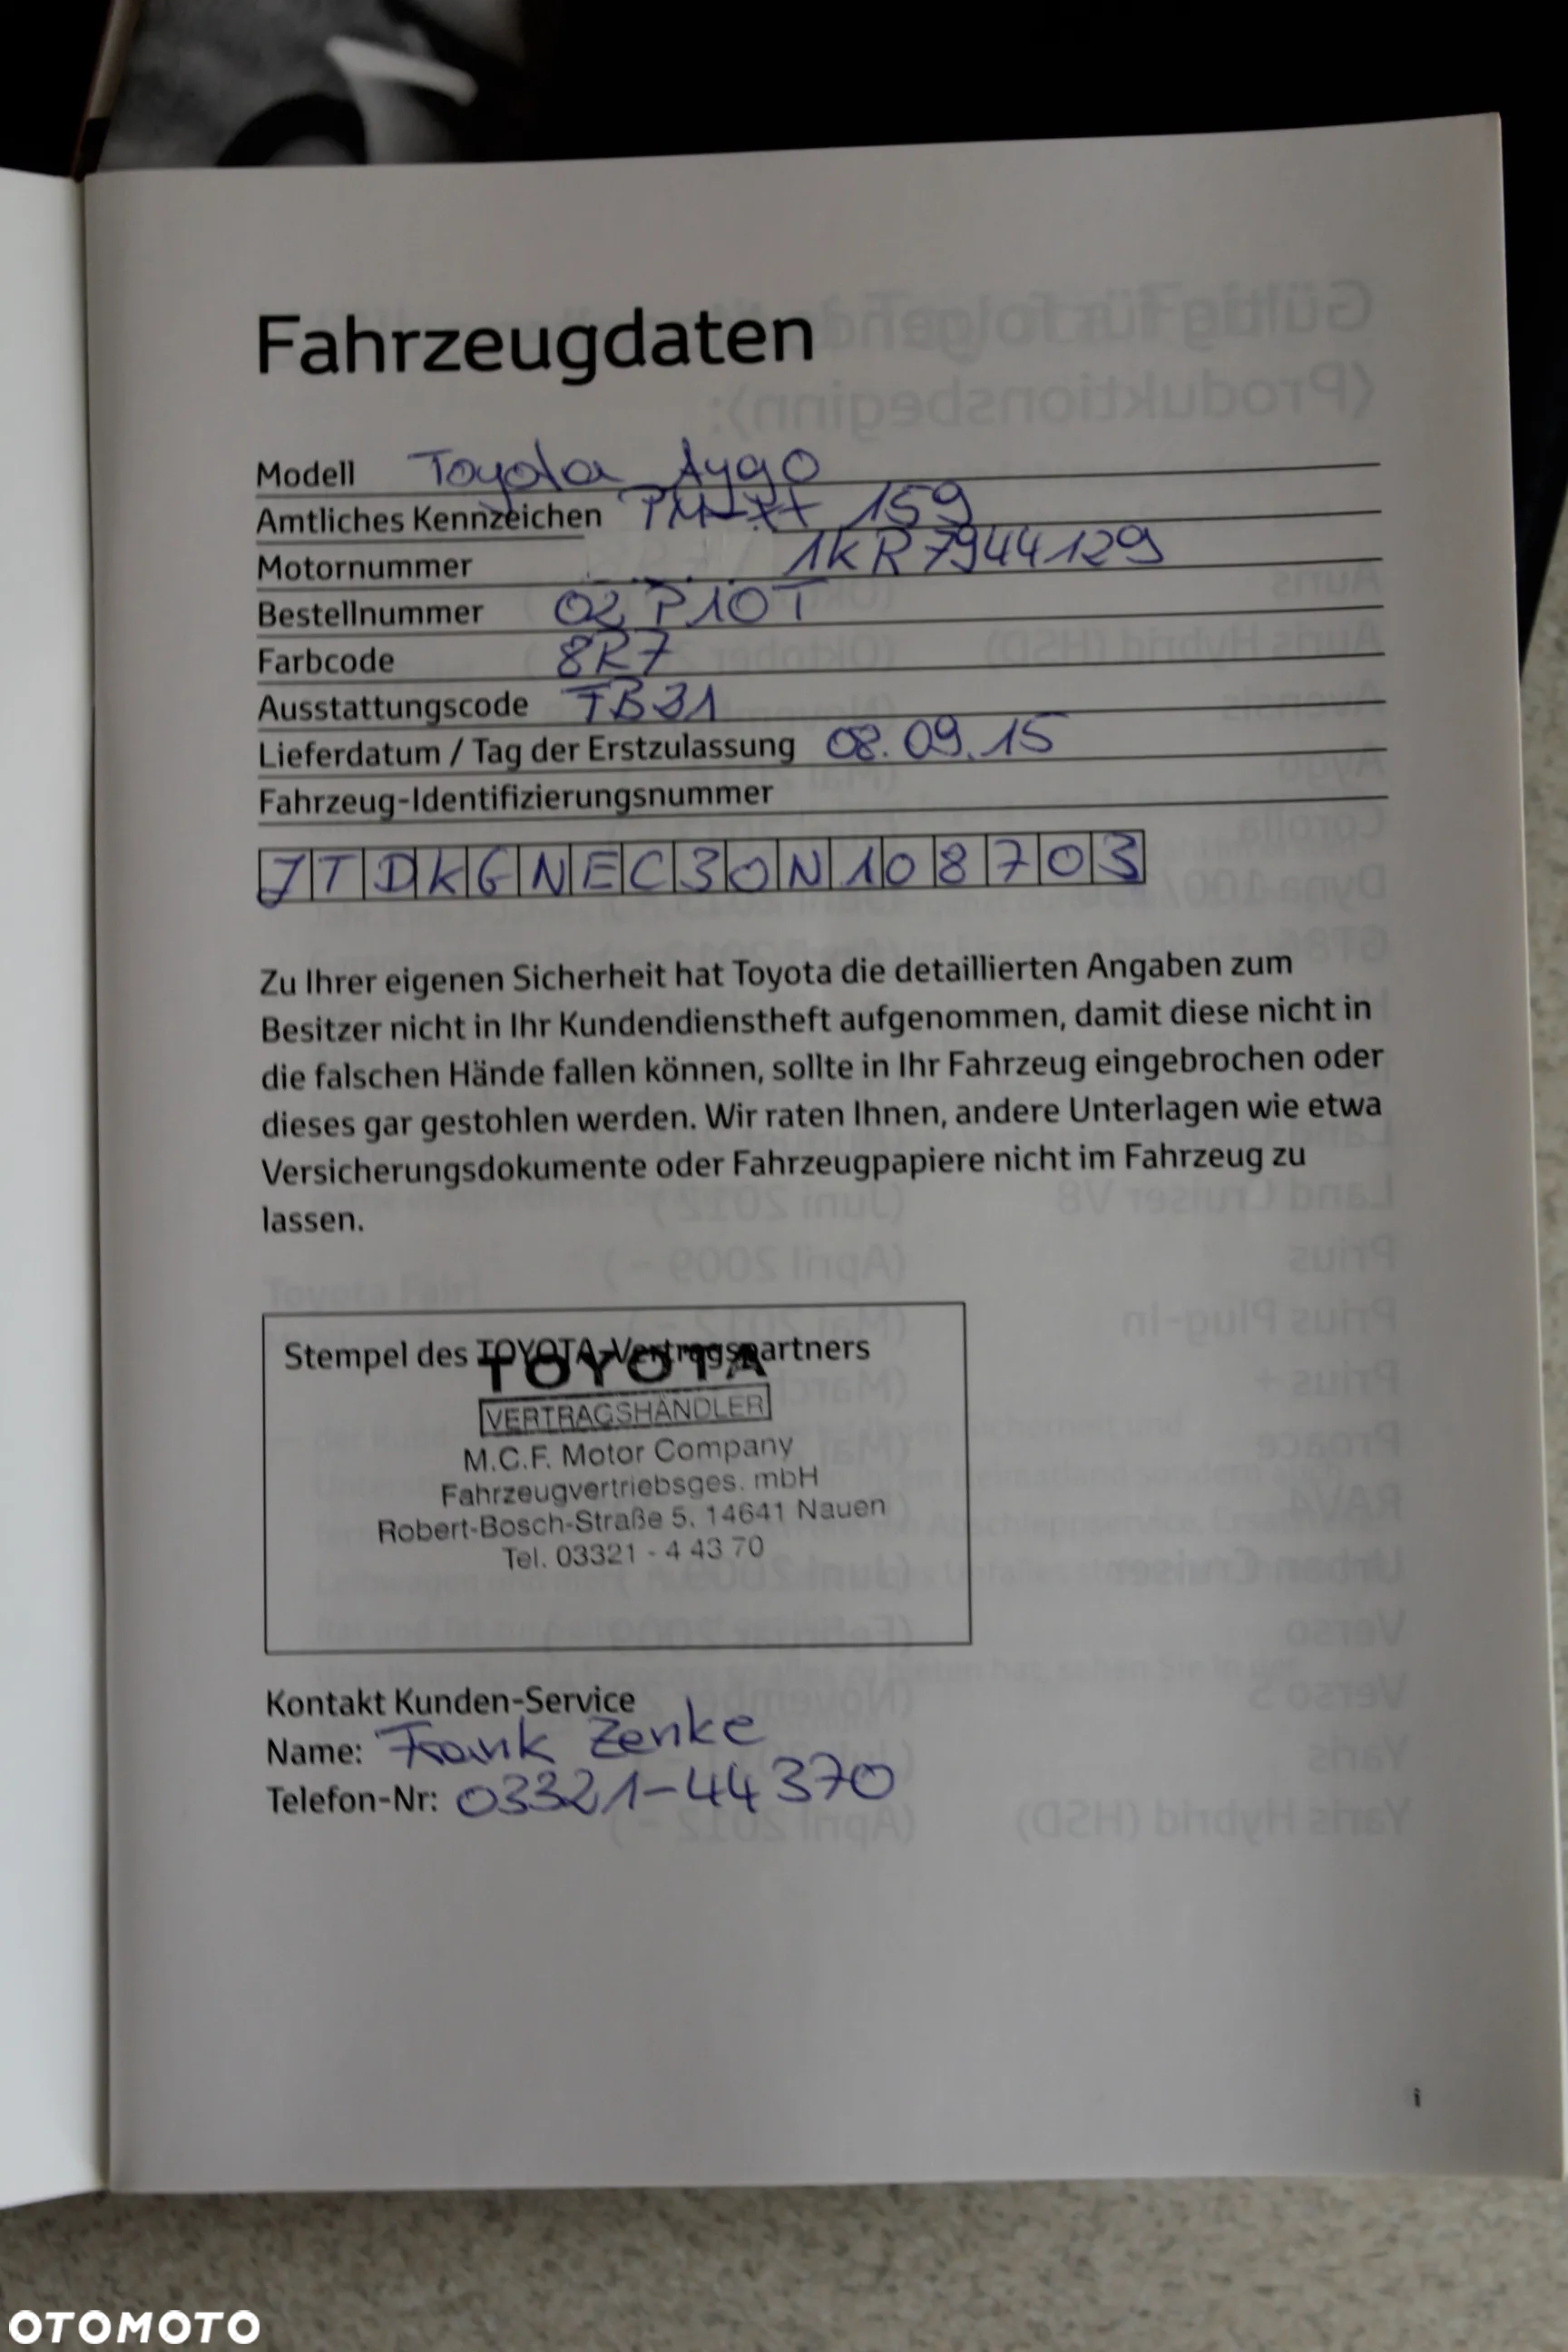 Fahrzeugdaten
Modell Toyota Aygo
Amtliches Kennzeichen PM-XX 159
Motornummer 1KR7944129
Bestellnummer 02 P10T
Farbcode 8R7
Ausstattungscode TB31
Lieferdatum / Tag der Erstzulassung 08.09.15
Fahrzeug-Identifizierungsnummer
JTDKGNEC30N108703
Zu Ihrer eigenen Sicherheit hat Toyota die detaillierten Angaben zum
Besitzer nicht in Ihr Kundendienstheft aufgenommen, damit diese nicht in
die falschen Hände fallen können, sollte in Ihr Fahrzeug eingebrochen oder
dieses gar gestohlen werden. Wir raten Ihnen, andere Unterlagen wie etwa
Versicherungsdokumente oder Fahrzeugpapiere nicht im Fahrzeug zu
lassen.
Stempel des TOYOTA-Vertragspartners
TOYOTA
VERTRAGSHÄNDLER
M.C.F. Motor Company
Fahrzeugvertriebsges. mbH
Robert-Bosch-Straße 5. 14641 Nauen
Tel. 03321 - 4 43 70
Kontakt Kunden-Service
Name: Frank Zenke
Telefon-Nr: 03321-44370
i
OTOMOTO